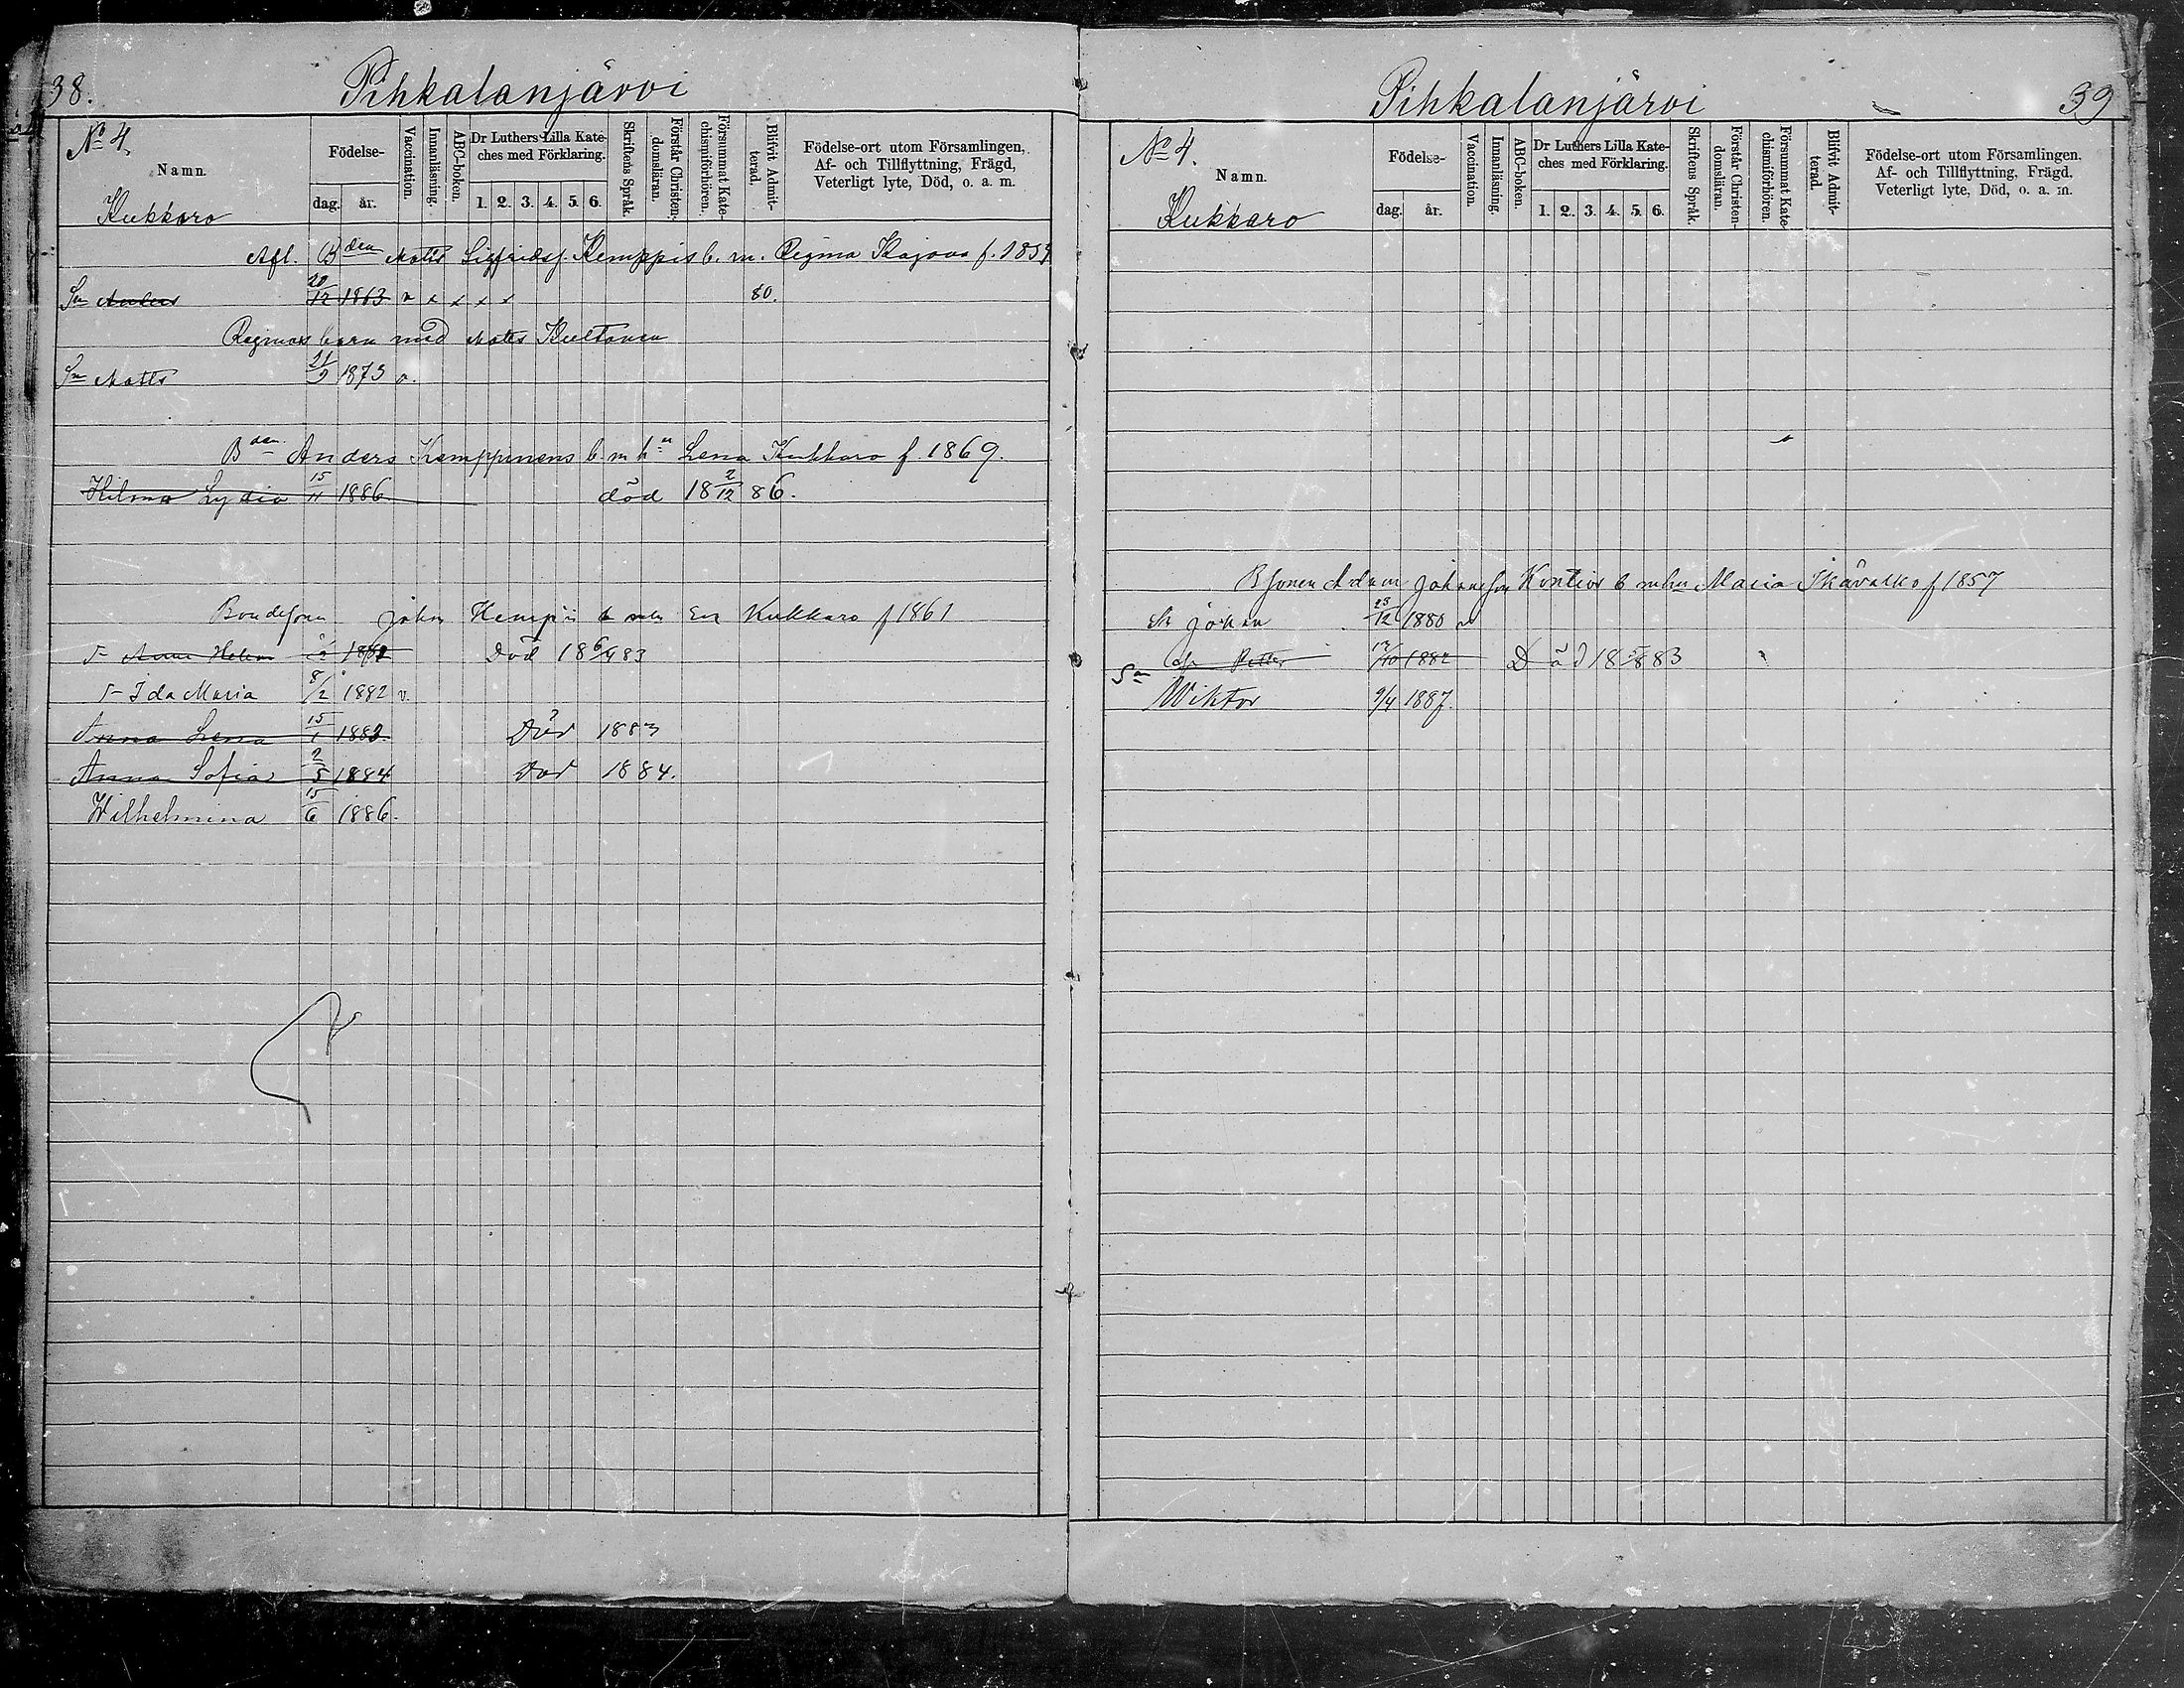 38.
Pihkalanjärvi
No 4.
Namn.
Kukkaro
Födelse-
dag. år.
Vaccination.
Innanläsning.
ABC-boken.
Dr Luthers Lilla Kate-
ches med Förklaring.
1. 2. 3. 4. 5. 6.
Skriftens Språk.
Förstår Christen-
domsläran.
Försummat Kate-
chismiförhören.
Blifvit Admit-
terad.
Födelse-ort utom Församlingen,
Af- och Tillflyttning, Frägd,
Veterligt lyte, Död, o. a. m.
Afl. Bden Matts Sigfridss. Kemppis b. m. Regina Kajova f. 1839
Sn Anders /12 1863 v x x x x 80.
Reginas barn med Matts Kultanen
Sn Matts 21/9 1873 v.
Bden Anders Kemppinens b m hn Lena Kukkaro f. 1869.
Hilma Lydia 15/11 1886 död 18 2/12 86.
Bondesonen Johan Kempis b mhn Eva Kukkaro f 1861
Anna Helena Död 18 6/4 83
Ida Maria 8/2 1882 v.
Anna Lena 15/1 1883. Död 1883
Anna Sofia 2/5 1884 Död 1884.
Wilhelmina 15/6 1886.
Pihkalanjärvi
39
No 4.
Namn.
Kukkaro
Födelse-
dag. år.
Vaccination.
Innanläsning.
ABC-boken.
Dr Luthers Lilla Kate-
ches med Förklaring.
1. 2. 3. 4. 5. 6.
Skriftens Språk.
Förstår Christen-
domsläran.
Försummat Kate-
chismiförhören.
Blifvit Admit-
terad.
Födelse-ort utom Församlingen.
Af- och Tillflyttning, Frägd.
Veterligt lyte, Död, o. a. m.
Bsonen Adam Johansson Kontios b mhn Maria Ikävalko f 1857
Sn Johan 23/12 1880 v
Sn Petter 17/10 1882 Död 18 /8 83
Wiktor 9/4 1887.